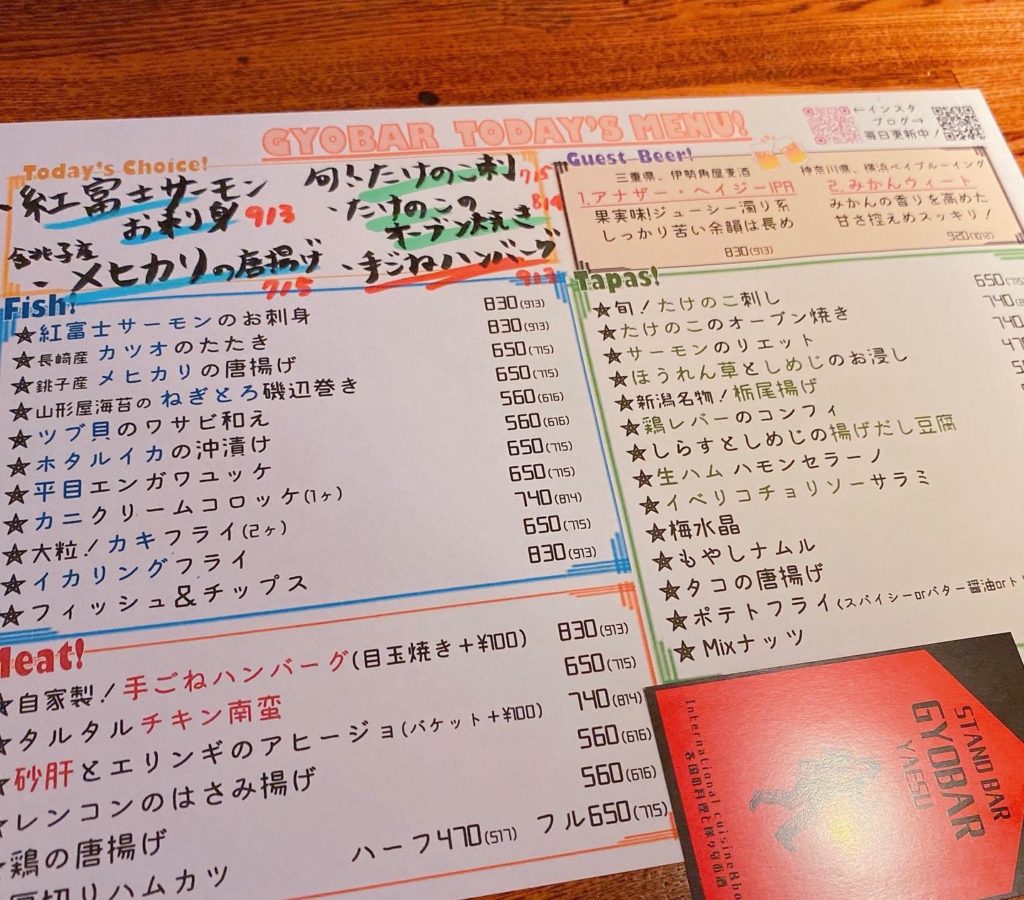 GYOBAR TODAY'S MENU!
←インスタ
ブログ→
毎日更新中！
Today's Choice!
・紅富士サーモン
お刺身 913
銚子産
・メヒカリの唐揚げ
715
旬！たけのこ刺
715
・たけのこの
オーブン焼き
814
・手ごねハンバーグ
913
Guest Beer!
三重県、伊勢角屋麦酒
1.アナザー・ヘイジーIPA
果実味!ジューシー濁り系
しっかり苦い余韻は長め
830(913)
神奈川県、横浜ベイブルーイング
2.みかんウィート
みかんの香りを高めた
甘さ控えめスッキリ！
920(1012)
Fish!
★紅富士サーモンのお刺身 830(913)
★長崎産 カツオのたたき 830(913)
★銚子産 メヒカリの唐揚げ 650(715)
★山形屋海苔の ねぎとろ磯辺巻き 650(715)
★ツブ貝のワサビ和え 560(616)
★ホタルイカの沖漬け 560(616)
★平目エンガワユッケ 650(715)
★カニクリームコロッケ(1ヶ) 650(715)
★大粒！カキフライ(2ヶ) 740(814)
★イカリングフライ 650(715)
★フィッシュ＆チップス 830(913)
Meat!
★自家製！手ごねハンバーグ(目玉焼き＋¥100) 830(913)
★タルタルチキン南蛮 650(715)
★砂肝とエリンギのアヒージョ(バケット＋¥100) 740(814)
★レンコンのはさみ揚げ 560(616)
★鶏の唐揚げ 560(616)
厚切りハムカツ ハーフ470(517) フル650(715)
Tapas!
★旬！たけのこ刺し 650(715
★たけのこのオーブン焼き 740
★サーモンのリエット
★ほうれん草としめじのお浸し
★新潟名物！栃尾揚げ
★鶏レバーのコンフィ
★しらすとしめじの揚げだし豆腐
★生ハム ハモンセラーノ
★イベリコチョリソーサラミ
★梅水晶
★もやしナムル
★タコの唐揚げ
★ポテトフライ(スパイシーorバター醤油orト
★Mixナッツ
STAND BAR
GYOBAR
YAESU
International cuisine
各国の料理と様々なお酒